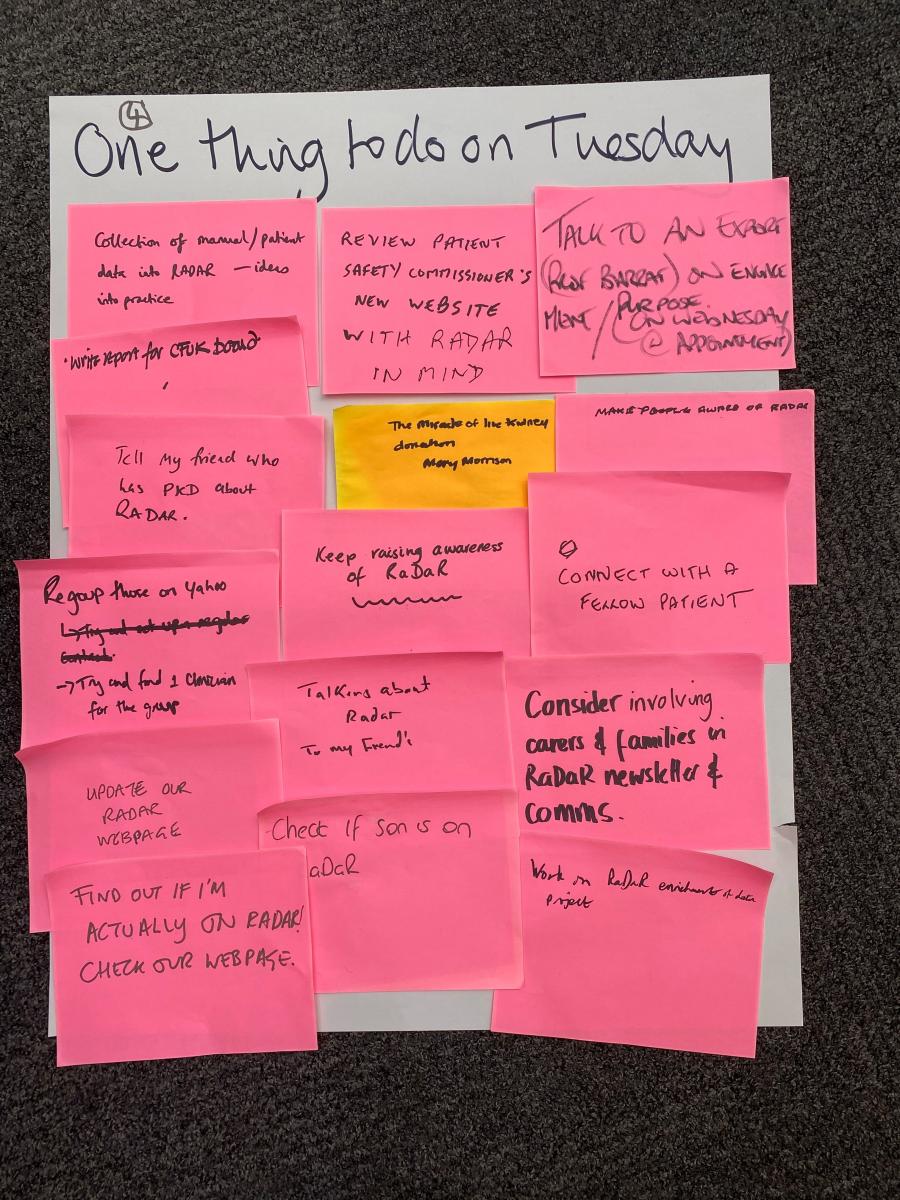 4
One thing to do on Tuesday
Collection of manual/patient
data into RADAR — ideas
into practice
REVIEW PATIENT
SAFETY COMMISSIONER'S
NEW WEBSITE
WITH RADAR
IN MIND
TALK TO AN EXPERT
(PROF BARRAT) ON ENGAGE
MENT / PURPOSE.
(ON WEDNESDAY
@ APPOINTMENT)
· Write report for CFUK board
Tell my friend who
has PKD about
RADAR.
The Miracle of live kidney
donation
Mary Morrison
MAKE PEOPLE AWARE OF RADAR
Keep raising awareness
of RaDaR
CONNECT WITH A
FELLOW PATIENT
Regroup those on Yahoo
→ Try and set up a regular
contact.
→ Try and find 1 Clinician
for the group
Talking about
Radar
To my Friend's
Consider involving
carers & families in
RaDaR newsletter &
comms.
UPDATE OUR
RADAR
WEBPAGE
Check if son is on
aDaR
FIND OUT IF I'M
ACTUALLY ON RADAR!
CHECK OUR WEBPAGE.
Work on RaDaR enrichment of data
project